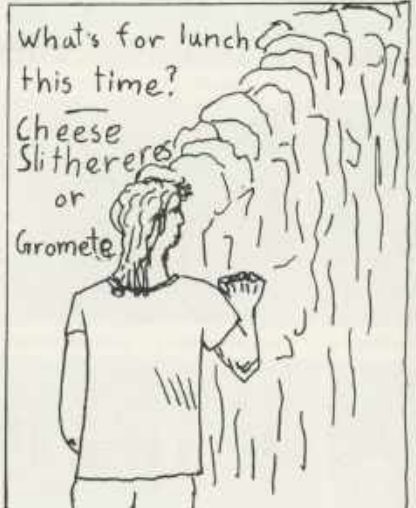 What's for lunch
this time?
Cheese
Slitherers
or
Gromete